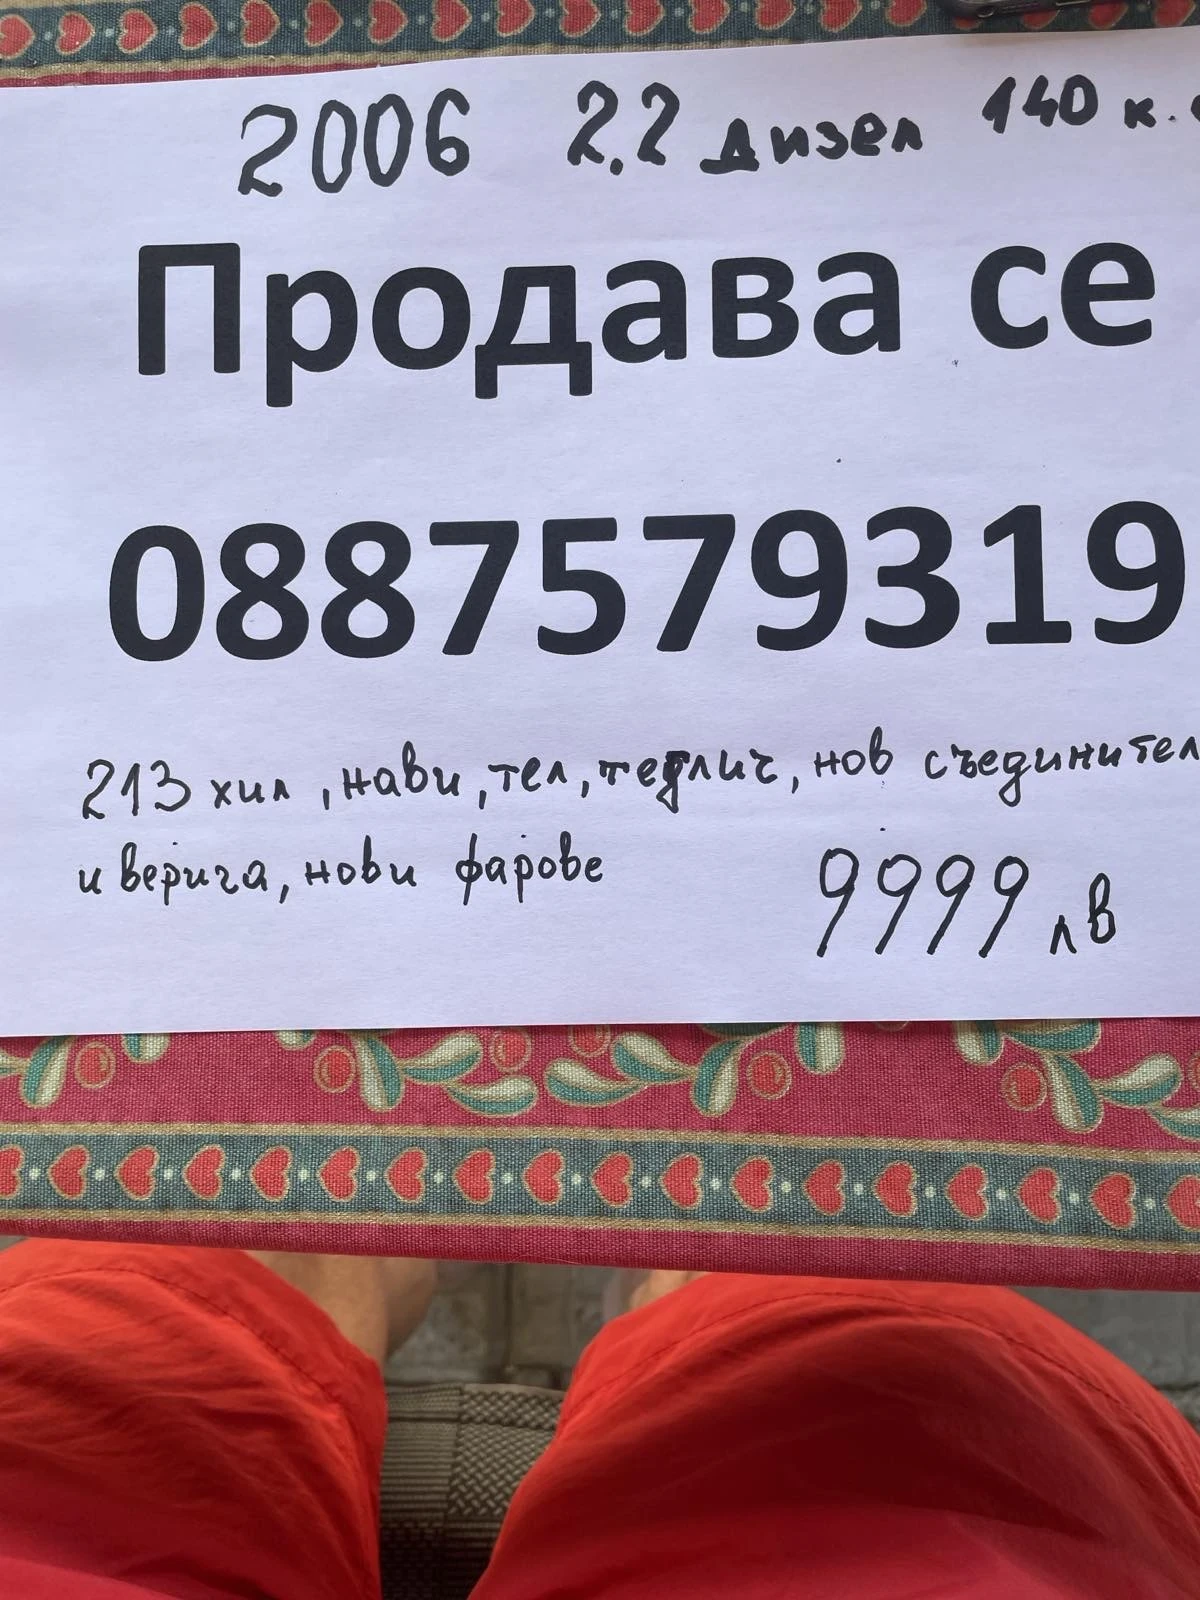 2006 2.2 дизел 140 к.с
Продава се
0887579319
213 хил, нави, тел, теглич, нов съединител
и верига, нови фарове
9999 лв